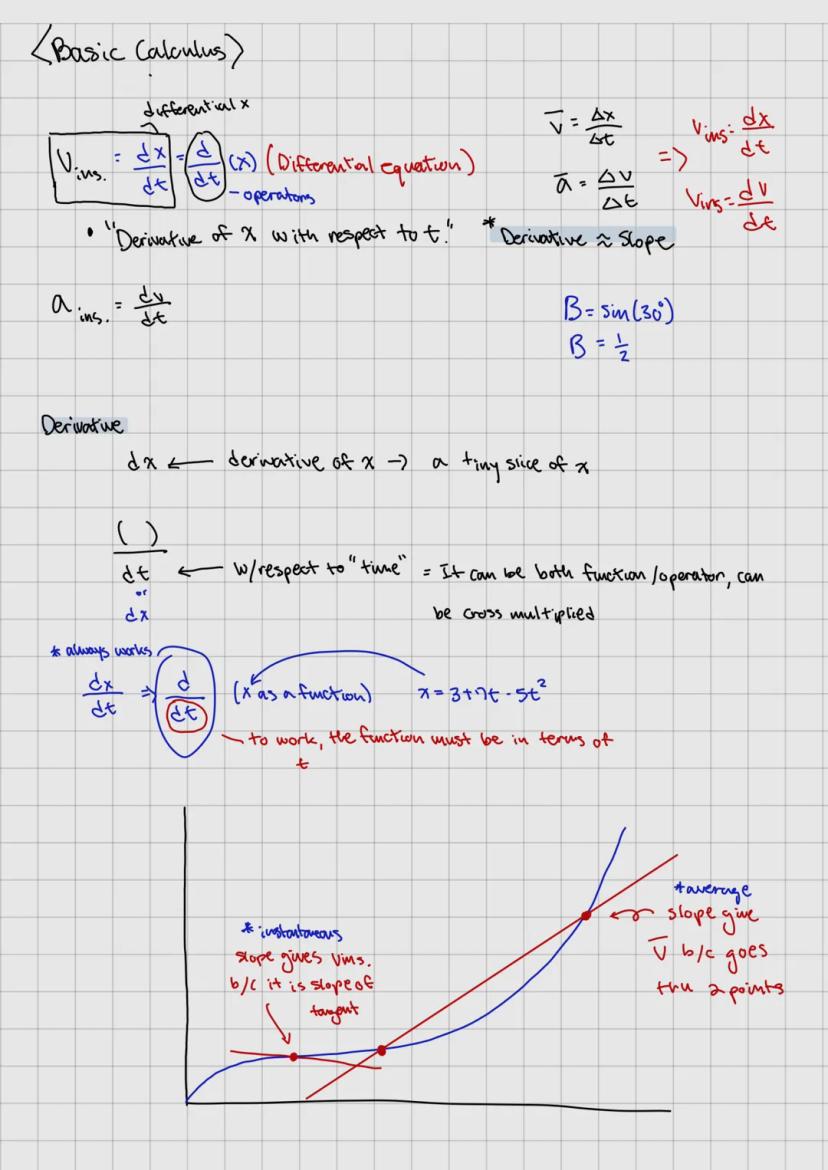 <Basic Calculus>
differential x
Vins. = dx/dt = d/dt (x) (Differential equation)
- operators
• "Derivative of x with respect to t."
a ins. = dv/dt
v̅ = Δx/Δt
a̅ = Δv/Δt
=> Vins= dx/dt
Vins = dv/dt
* Derivative ≈ Slope
B = sin(30°)
B = 1/2
Derivative
dx ← derivative of x → a tiny slice of x
( )/dt ← w/respect to "time" = It can be both function/operator, can
or
dx
be cross multiplied
* always works
dx/dt => d/dt (x as a function) x = 3+7t-5t²
to work, the function must be in terms of
t
* instantaneous
slope gives Vins.
b/c it is slope of
tangent
*average
slope give
v̅ b/c goes
thru 2 points